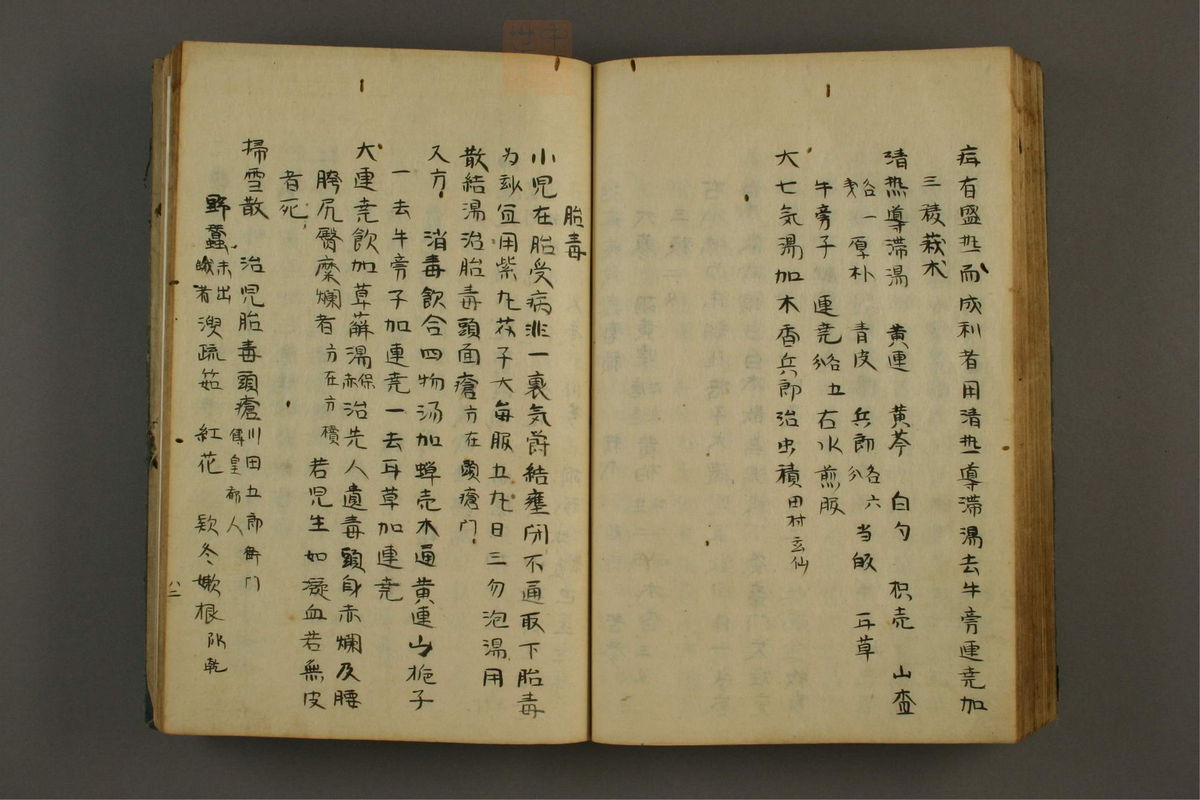 疳有盛热而成利者用清热導滞湯去牛旁連堯加
三稜莪朮
清热導滞湯　黄連　黄芩　白勺　枳壳　山査
各一　厚朴　青皮　兵郎各六　当皈　耳草
牛旁子　連堯各五　右水煎服
大七気湯加木香兵郎治虫積田村玄仙
胎毒
小児在胎受病非一裏気欝結壅闭不通取下胎毒
为宜用紫九茯子大每服五九日三勿泡湯用
散結湯治胎毒頭面瘡方在頭瘡门
又方　消毒飲合四物汤加蝉壳木通黄連山栀子
一去牛旁子加連堯一去耳草加連堯
大連堯飲加草薢湯治先人遺毒頭身赤爛及腰
胯尻臀糜爛者方在方積　若児生如凝血若無皮
者死
掃雪散　治児胎毒頭瘡川田五郎衛门傳
野蚕未出蛾者　溲疏茹　紅花　欵冬嫩根阴乾